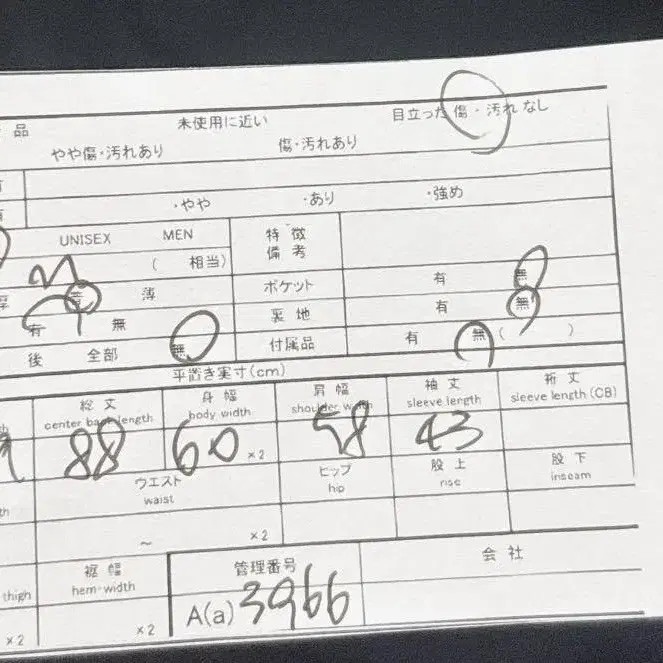 品 未使用に近い 目立った傷・汚れなし
やや傷・汚れあり 傷・汚れあり
・やや ・あり ・強め
UNISEX MEN 特徴
備考
M ( 相当)
普 薄 ポケット 有 無
有 無 裏地 有 無
後 全部 無 付属品 有 無( )
平置き実寸(cm)
総丈 身幅 肩幅 袖丈 裄丈
center back length body width shoulder width sleeve length sleeve length (CB)
88 60 ×2 58 43
ウエスト ヒップ 股上 股下
waist hip rise inseam
～ ×2
裾幅 管理番号 会社
thigh hem-width
×2 ×2 A(a) 3966